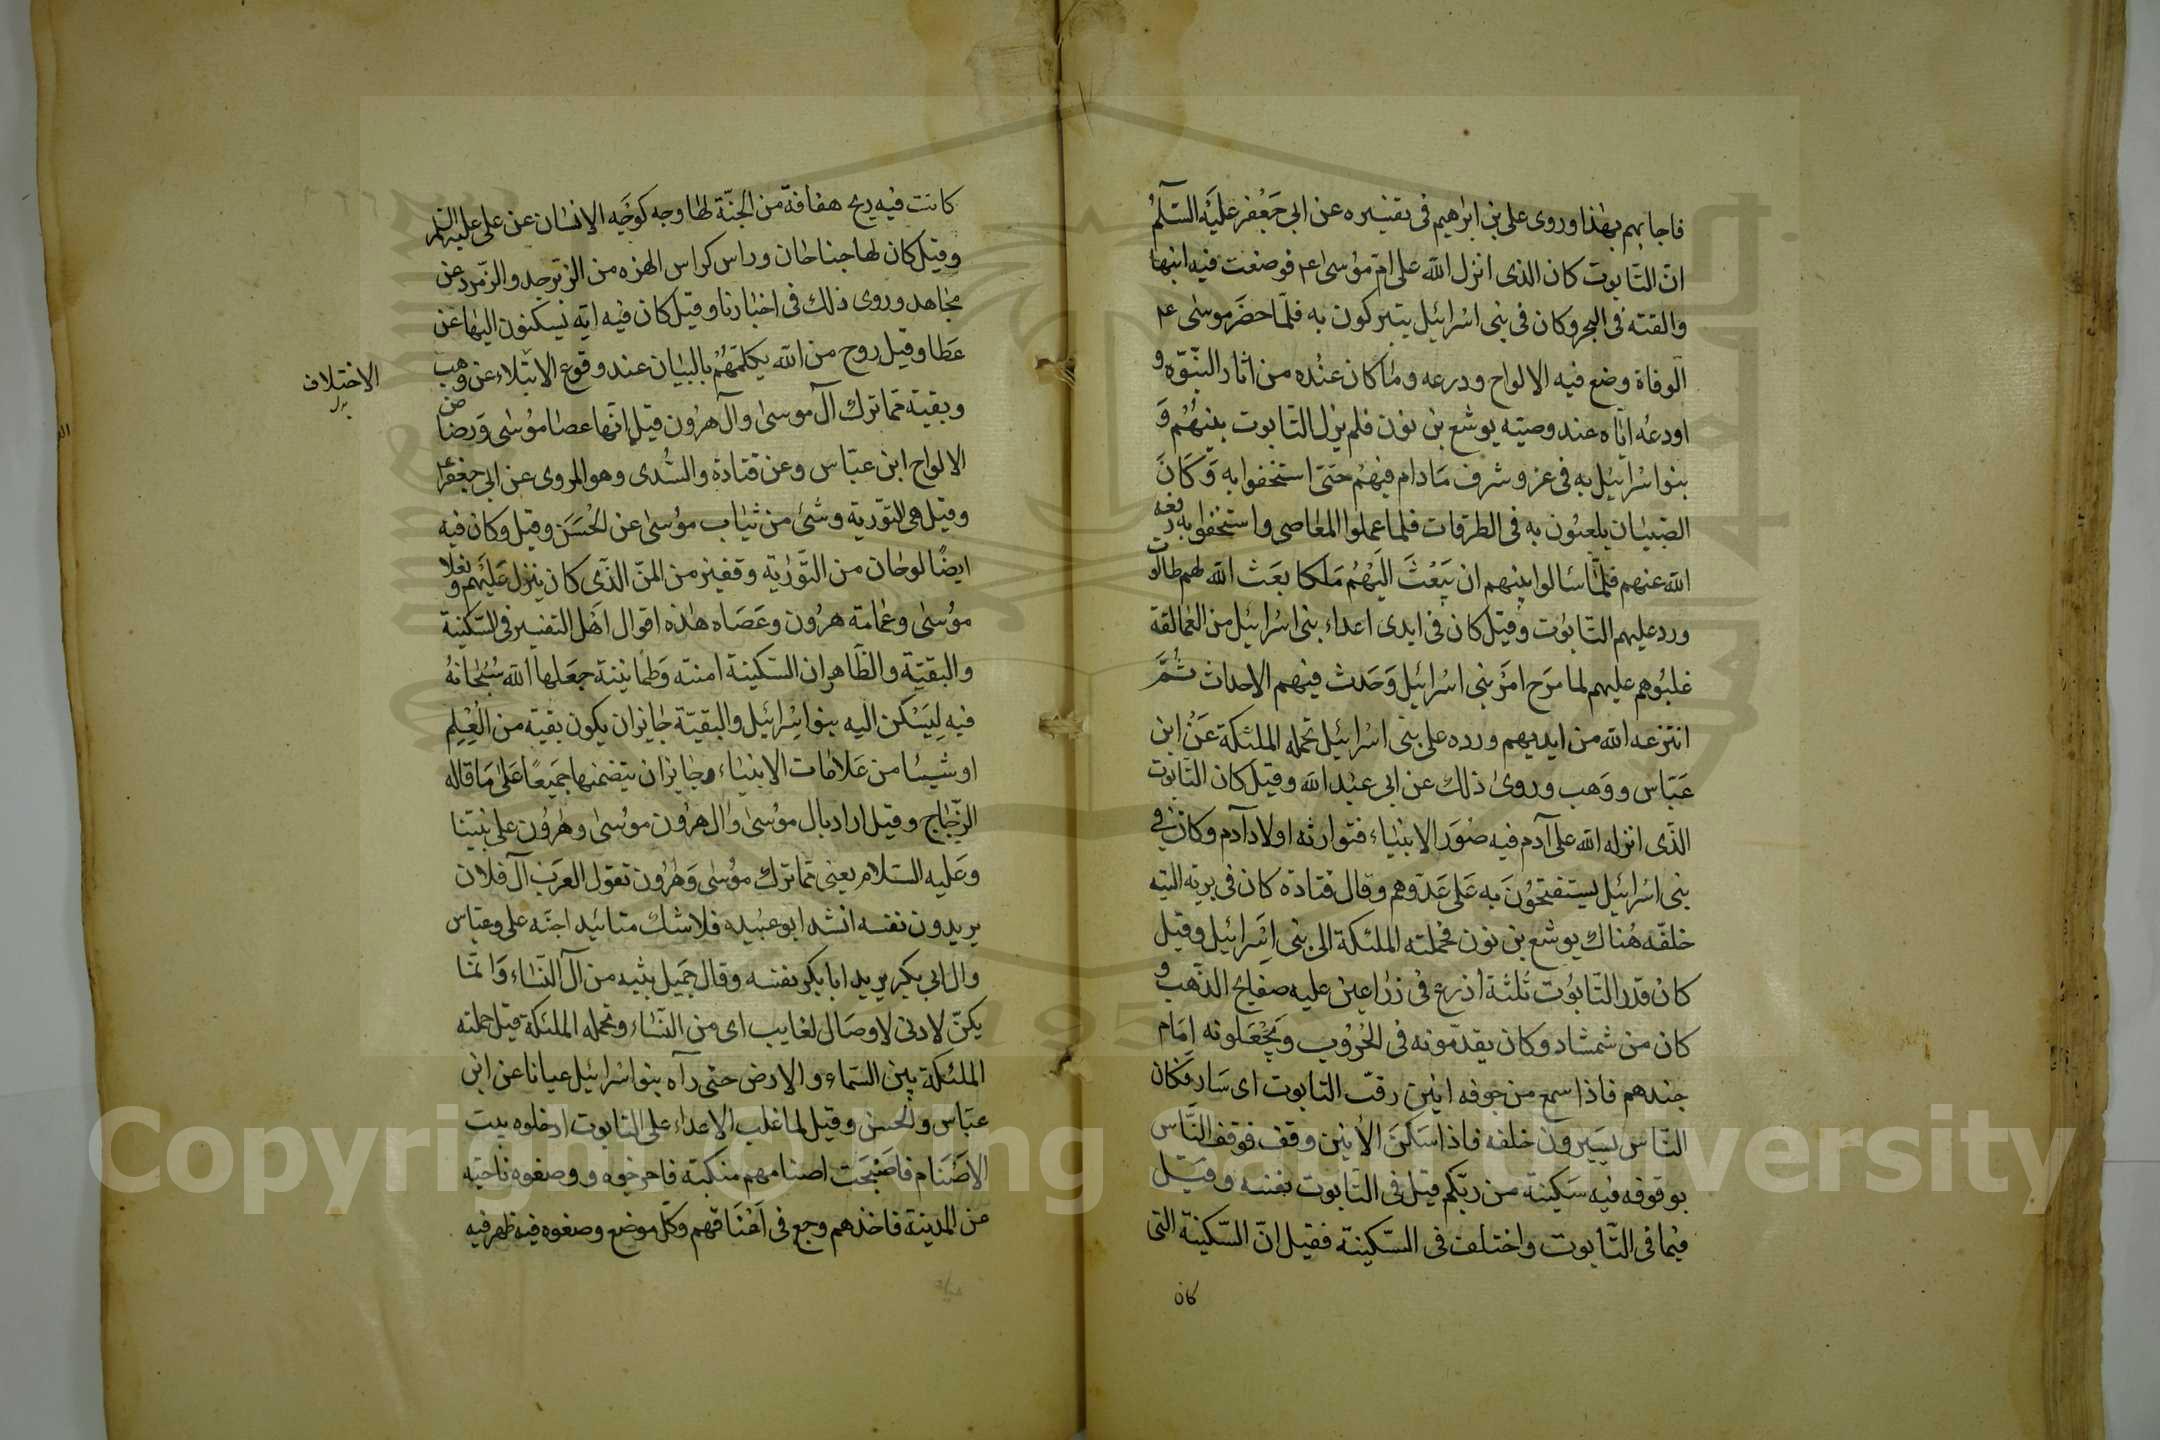 فاجابهم بهذا وروى على بن ابرهيم فى تفسيره عن ابى جعفر عليه السلم
ان التابوت كان الذى انزل الله على ام موسى ع فوضعت فيه ابنها
والقته فى البحر وكان فى بنى اسرائيل يتبركون به فلما حضر موسى ع
الوفاة وضع فيه الالواح ودرعه وما كان عنده من اثار النبوة و
اودعه اياه عند وصيته يوشع بن نون فلم يزل التابوت بينهم و
بنو اسرائيل به فى عز وشرف مادام فيهم حتى استخفوا به وكان
الصبيان يلعبون به فى الطرقات فلما عملوا المعاصى واستخفوا به رفعه
الله عنهم فلما سالوا نبيهم ان يبعث اليهم ملكا بعث الله لهم طالوت
ورد عليهم التابوت وقيل كان فى ايدى اعداء بنى اسرائيل من العمالقة
غلبوهم عليهم لما مرح امر بنى اسرائيل وحدث فيهم الاحداث ثم
انتزعه الله من ايديهم ورده على بنى اسرائيل تحمله الملئكة عن ابن
عباس ووهب وروى ذلك عن ابى عبد الله وقيل كان التابوت
الذى انزله الله على آدم فيه صور الانبياء فتوارثه اولاد آدم وكان فى
بنى اسرائيل يستفتحون به على عدوهم وقال قتادة كان فى برية التيه
خلفه هناك يوشع بن نون فحملته الملئكة الى بنى اسرائيل وقيل
كان قدر التابوت ثلثة اذرع فى ذراعين عليه صفايح الذهب و
كان من شمشاد وكان يقدمونه فى الحروب ويجعلونه امام
جندهم فاذا سمع من جوفه انين زف التابوت اى سار فكان
الناس يسيرون خلفه فاذا سكن الانين وقف فوقف الناس
بوقوفه فيه سكينة من ربكم قيل فى التابوت نفسه وقيل
فيما فى التابوت واختلف فى السكينة فقيل ان السكينة التى
كان
كانت فيه ريح هفافة من الجنة لها وجه كوجه الانسان عن على عليه السلم
وقيل كان لها جناحان وراس كراس الهره من الزبرجد والزمرد عن
مجاهد وروى ذلك فى اخبارنا وقيل كان فيه اية يسكنون اليها عن
عطا وقيل روح من الله يكلمهم بالبيان عند وقوع الابتلاء عن وهب
الاختلاف
بدل
وبقية مما ترك آل موسى وآل هرون قيل انها عصا موسى ورضاض
الالواح ابن عباس وعن قتادة والسدى وهو المروى عن ابى جعفر ع
وقيل هى التورية وشئ من ثياب موسى عن الحسن وقيل وكان فيه
ايضا لوحان من التورية وقفيز من المن الذى كان ينزل عليهم ونعلا
موسى وعمامة هرون وعصاه هذه اقوال اهل التفسير فى السكينة
والبقية والظاهر ان السكينة امنة وطمانينة جعلها الله سبحانه
فيه ليسكن اليه بنو اسرائيل والبقية جايز ان يكون بقية من العلم
او شيئا من علامات الانبياء وجايز ان يتضمنها جميعا على ما قاله
الزجاج وقيل اراد بال موسى وال هرون موسى وهرون على نبينا
وعليه السلام يعنى مما ترك موسى وهرون تقول العرب آل فلان
يريدون نفسه انشد ابو عبيده فلا تبك ميتا بعد ميت اجنه على وعباس
وال ابى بكر يريد ابا بكر نفسه وقال جميل بثينه من آل النساء وانما
يكن لادنى لا وصال لغايب اى من النساء وتحمله الملئكة قيل حملته
الملئكة بين السماء والارض حتى رآه بنو اسرائيل عيانا عن ابن
عباس والحسن وقيل لما غلب الاعداء على التابوت ادخلوه بيت
الاصنام فاصبحت اصنامهم منكبة فاخرجوه ووضعوه ناحية
من المدينة فاخذهم وجع فى اعناقهم وكل موضع وضعوه فيه ظهر فيه
Copyright © King Saud University
1957